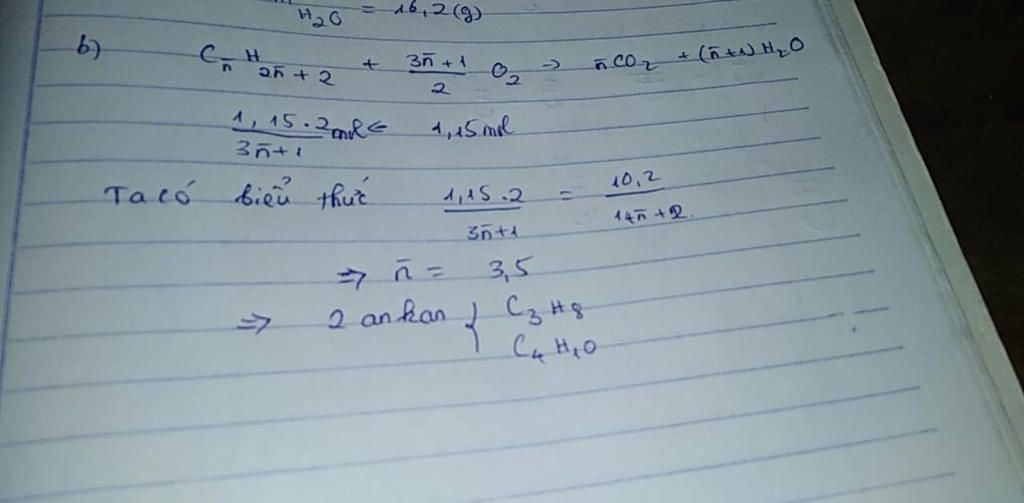 H₂O = 16,2(g)
b) Cn̄H2n̄+2 + (3n̄+1)/2 O₂ → n̄CO₂ + (n̄+1)H₂O
1,15.2/(3n̄+1) mol ← 1,15mol
Ta có biểu thức 1,15.2/(3n̄+1) = 10,2/(14n̄+2)
⇒ n̄ = 3,5
⇒ 2 ankan { C₃H₈
C₄H₁₀